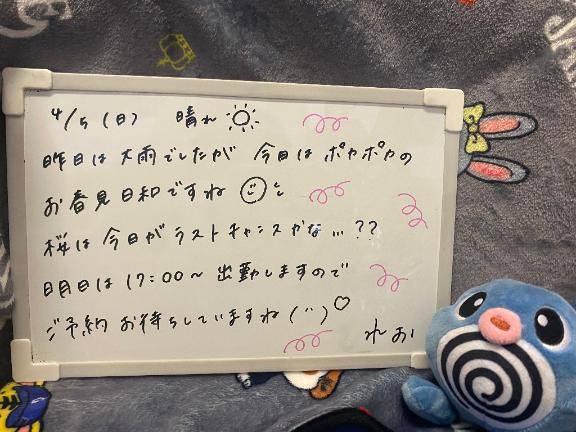 4/5 (日) 晴れ
昨日は大雨でしたが 今日はポカポカの
お春見日和ですね
桜は今日がラストチャンスかな...??
明日は17:00~ 出勤しますので
ご予約お待ちしていますね(¨)♡
れお